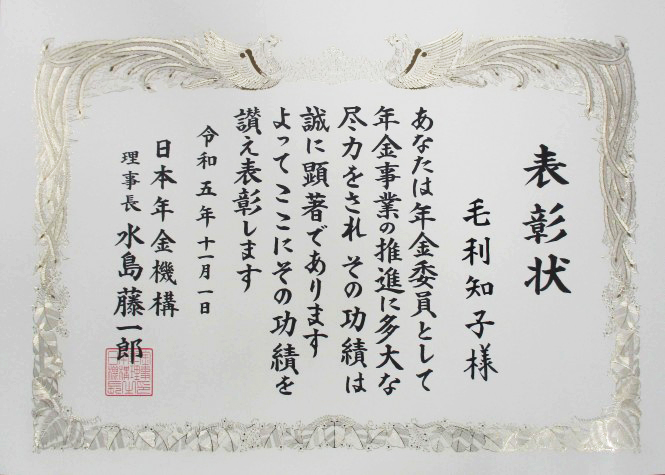 表彰状
毛利知子様
あなたは年金委員として
年金事業の推進に多大な
尽力をされ その功績は
誠に顕著であります
よってここにその功績を
讃え表彰します
令和五年十一月一日
日本年金機構
理事長 水島藤一郎